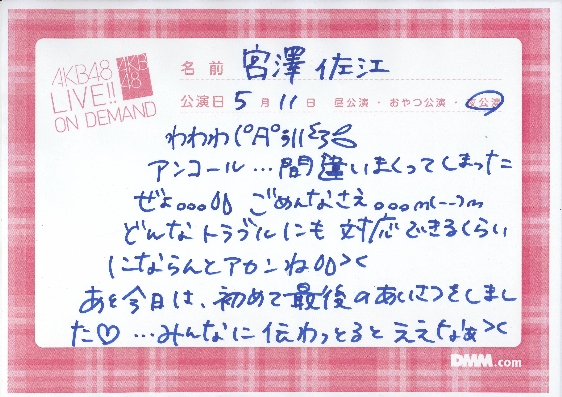 AKB48
LIVE!!
ON DEMAND
AKB
48
名前 宮澤佐江
公演日 5月11日 昼公演・おやつ公演・夜公演
わわわ(°A°
アンコール…間違いまくってしまった
ぜよ。。。 ごめんなさえ。。。m(--)m
どんなトラブルにも対応できるくらい
にならんとアカンね><
あと今日は、初めて最後のあいさつをしまし
た♡…みんなに伝わっとるとええなぁ><
DMM.com